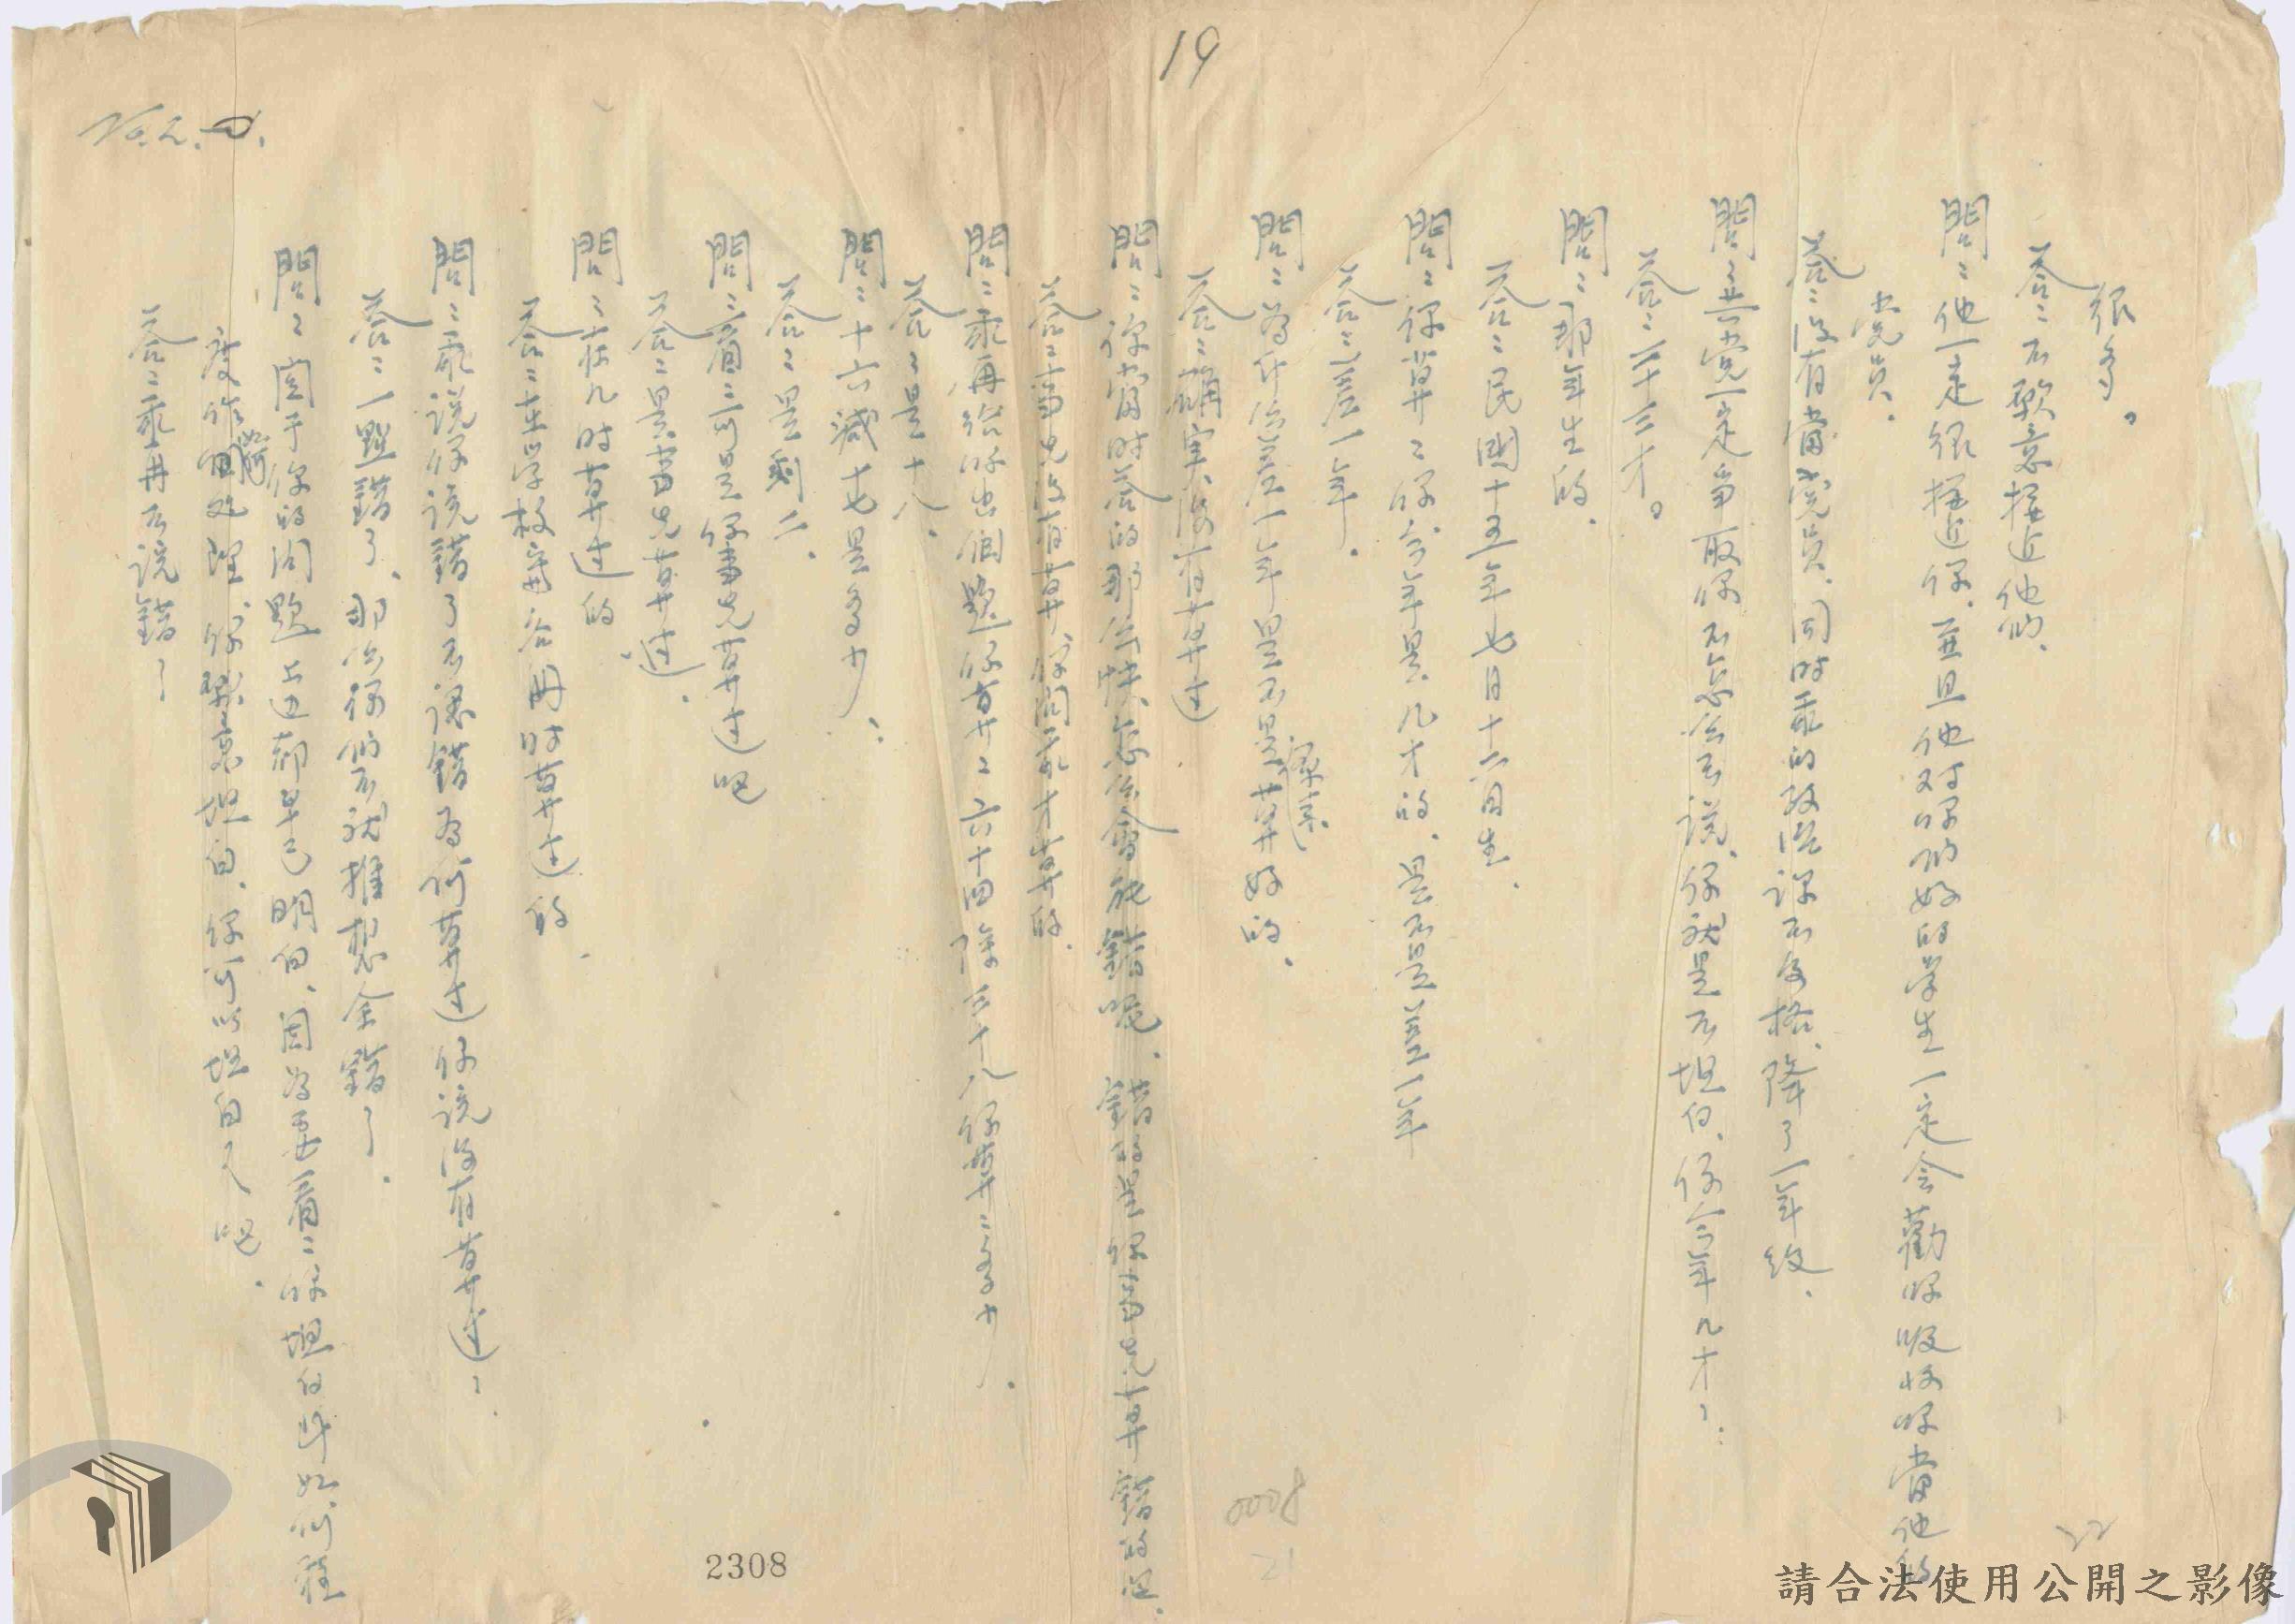 19
No.2.
很多。
答:不願意接近他們、
問:他一定很接近你、並且他对你们好的学生一定会勸你吸收你當他的
党員、
答:沒有當党員、同时我的政治課不及格、降了一年級、
問:共党一定爭取你不怎么不说、你就是不坦白、你今年几才、
答:二十三才。
問:那年生的、
答:民國十五年七月十六日生、
問:你算:你今年是几才的、是不是差一年
答:差一年、
問:為什么差一年是不是算好的、
答:講实沒有算过
問:你當时答的那么快怎么會能錯呢、
答:當先沒有算、你问我才算的、
問:我再给你出個題你算:六十四除三十八你算:多少、
答:是十八、
問:十六減十七是多少、
答:是剩二、
問:看:可是你當先算过吧
答:是當先算过、
問:在几时算过的
答:在学校宿舍内时算过的
問:我说你说錯了不認錯為何算过你说沒有算过、
答:一點錯了、那么你们不就推想全錯了、
問:関于你的问題上边都早已明白、因為要看:你坦白斗如何程
度作如何处理、你願意坦白、你可以坦白了吧、
答:我再不说錯了
0008
21
22
2308
請合法使用公開之影像